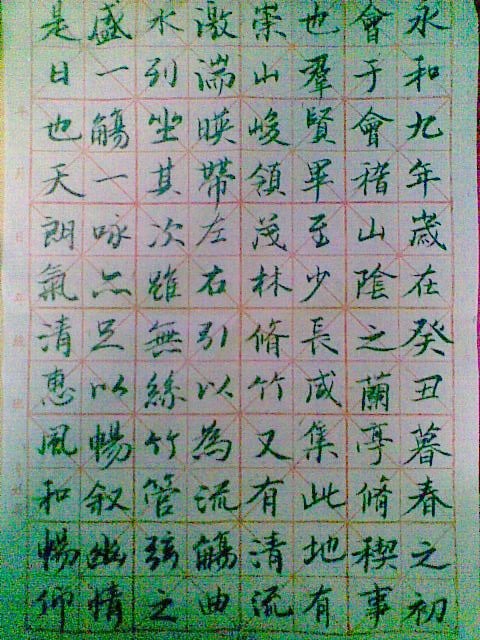 永和九年歲在癸丑暮春之初
會于會稽山陰之蘭亭脩稧事
也羣賢畢至少長咸集此地有
崇山峻領茂林脩竹又有清流
激湍暎帶左右引以為流觴曲
水列坐其次雖無絲竹管弦之
盛一觴一詠亦足以暢叙幽情
是日也天朗氣清惠風和暢仰